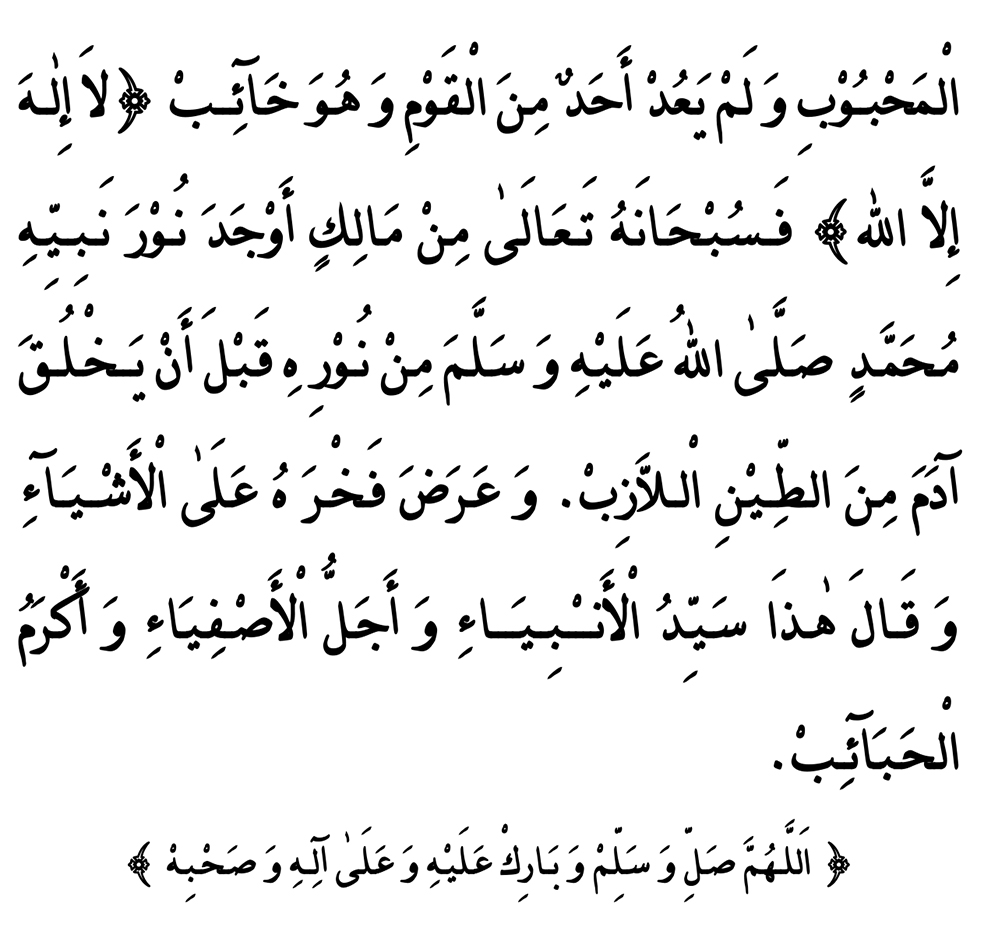 الْمَحْبُوْبِ وَ لَمْ يَعُدْ أَحَدٌ مِنَ الْقَوْمِ وَ هُوَ خَآئِبْ ﴿لَا إِلٰهَ
إِلاَّ الله﴾ فَسُبْحَانَهُ تَعَالَىٰ مِنْ مَالِكٍ أَوْجَدَ نُوْرَ نَبِيِّهِ
مُحَمَّدٍ صَلَّىٰ اللهُ عَلَيْهِ وَ سَلَّمَ مِنْ نُوْرِهِ قَبْلَ أَنْ يَخْلُقَ
آدَمَ مِنَ الطِّيْنِ الْلاَّزِبْ. وَ عَرَضَ فَخْرَهُ عَلَىٰ الْأَشْيَآءِ
وَ قَالَ هٰذَا سَيِّدُ الْأَنْبِيَاءِ وَ أَجَلُّ الْأَصْفِيَاءِ وَ أَكْرَمُ
الْحَبَآئِبْ.
﴿ اَللَّهُمَّ صَلِّ وَ سَلِّمْ وَ بَارِكْ عَلَيْهِ وَ عَلَىٰ آلِهِ وَ صَحْبِهْ ﴾